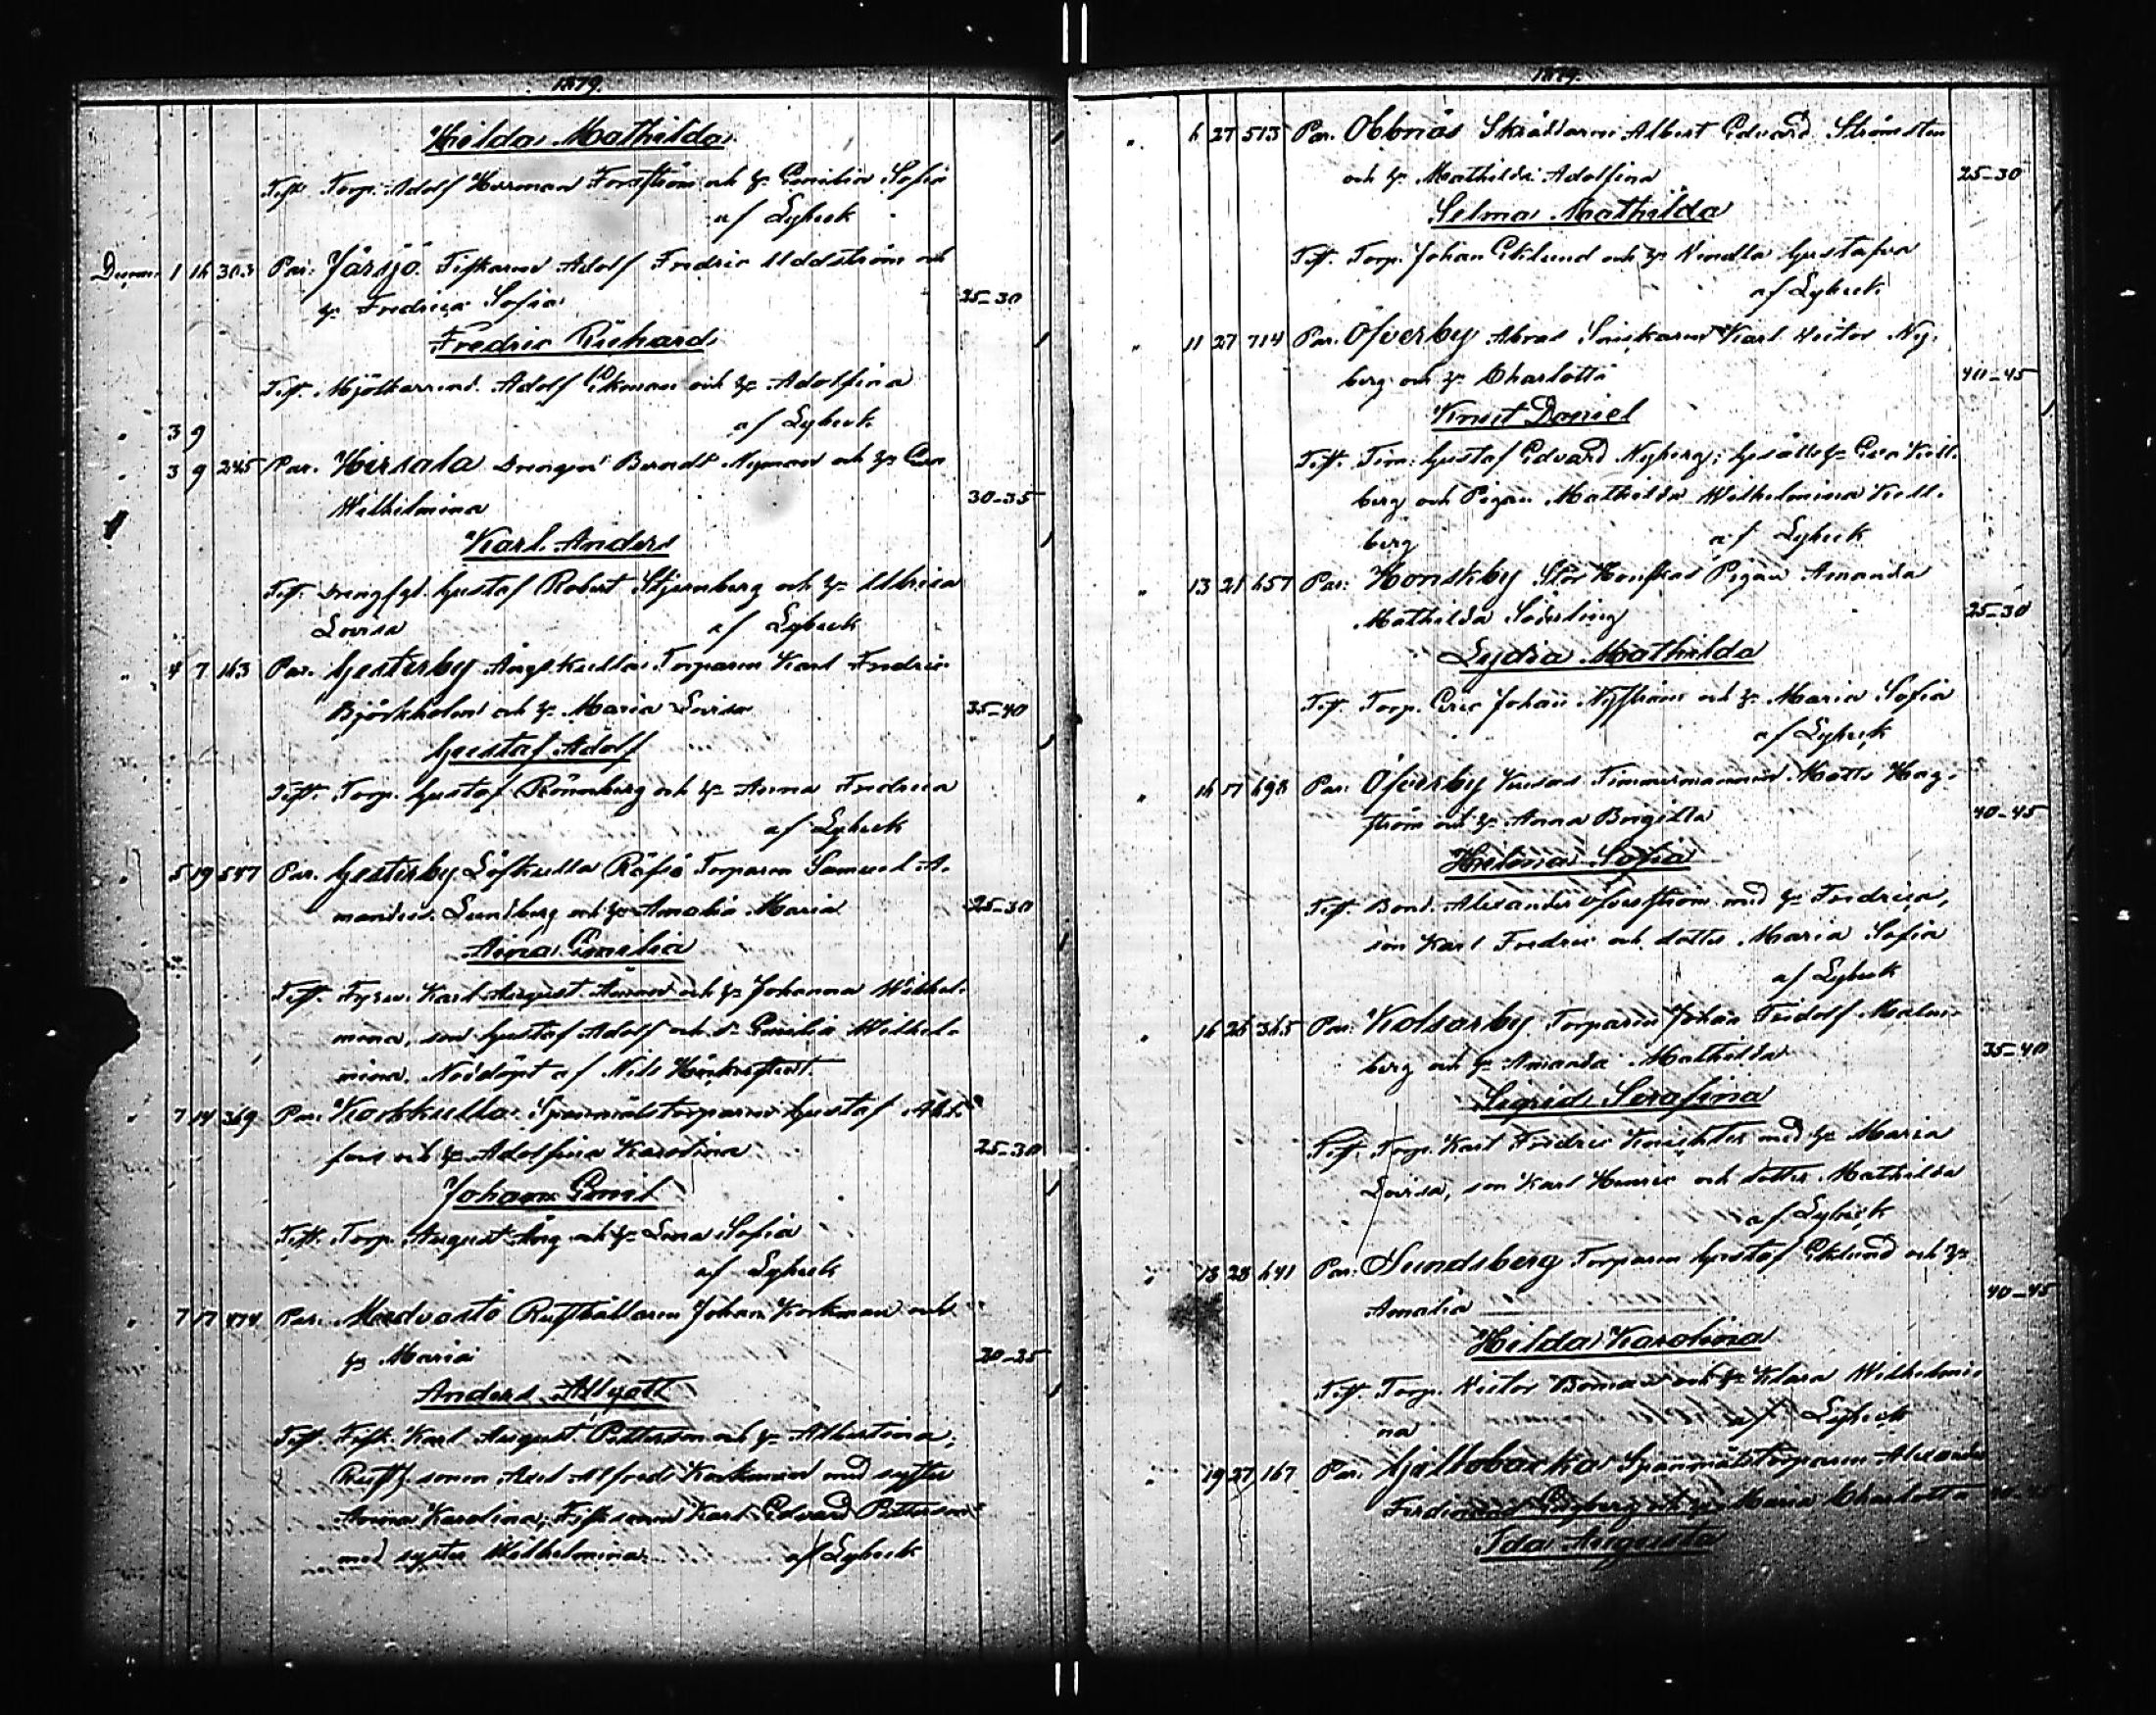 1879.
Hilda Mathilda
Test. Torp. Adolf Herman Forsström och h: Emilia Sofia
af Lybeck
Decem. 1 16 303 Par: Järsjö Fiskaren Adolf Fredric Uddström och
h: Fredrica Sofia 25-30
Fredric Richard
Test. Mjölkarrend. Adolf Ekman och h: Adolfina
af Lybeck
" 3 9
" 3 9 245 Par. Hirsala Drengen Berndt Nyman och h: Eva
Wilhelmina 30-35
Karl Anders
Test. Gustaf Robert Stjernberg och h: Ulrica
Lovisa af Lybeck
" 4 7 163 Par. Gesterby Ängskulla Torparen Karl Fredric
Björkholm och h: Maria Lovisa 35-40
Gustaf Adolf
Test. Torp. Gustaf Rönnberg och h: Anna Fredrica
af Lybeck
5 19 547 Par. Gesterby Löfkulla Räfsö Torparen Samuel A.
mandus Lundberg och h: Amalia Maria 25-30
Aina Emilia
Test. Karl August Åman och h: Johanna Wilhel-
mina, son Gustaf Adolf och d: Emilia Wilhel-
mina. Nöddöpt af Nils
" 7 14 369 Par. Kockkulla Spannmålstorparen Gustaf
fors och h: Adolfina Karolina 25-30
Johan Emil
Test. Torp. August Äng och h: Lena Sofia
af Lybeck
" 7 17 474 Par. Medvastö Rusthållaren Johan Korkman och
h: Maria 20-25
Anders Algott
Test. Fisk. Karl August Pettersson och h: Albertina;
Rusth. sonen Axel Alfred Korkman med syster
Anna Karolina, Fisk. sonen Karl Edvard Pettersson
med syster Wilhelmina. af Lybeck
1879.
" 6 27 513 Par. Obbnäs Skräddaren Albert Edvard Strömsten
och h: Mathilda Adolfina 25-30
Selma Mathilda
Test. Torp. Johan Eklund och h: Wendla Gustafva
af Lybeck
" 11 27 714 Par. Öfverby Abras Snickaren Karl Victor Ny-
berg och h: Charlotta 40-45
Knut Daniel
Test. Tim: Gustaf Edvard Nyberg; Gesällh: Eva
berg och Pigan Mathilda Wilhelmina
berg af Lybeck
" 13 21 657 Par: Honskby Stor Honskas Pigan Amanda
Mathilda Söderling 25-30
Lydia Mathilda
Test. Torp. Eric Johan Nyström och h: Maria Sofia
af Lybeck
" 16 17 698 Par: Öfverby Timmermannen Matts Hag-
ström och h: Anna Birgitta 40-45
Helena Sofia
Test. Bond. Alexander Öfverström med h: Fredrica,
son Karl Fredric och dotter Maria Sofia
af Lybeck
" 16 26 365 Par: Kolsarby Torparen Johan Fridolf Malm-
berg och h: Amanda Mathilda 35-40
Sigrid Serafina
Test. Torp. Karl Fredric med h: Maria
Lovisa, son Karl Henric och dotter Mathilda
af Lybeck
" 18 28 641 Par: Sundsberg Torparen Gustaf Eklund och h:
Amalia 40-45
Hilda Karolina
Test. Torp. Victor Boman och h: Klara Wilhelmi-
na af Lybeck
" 19 27 167 Par. Gillobacka Spannmålstorparen Alexander
Ferdinand och h: Maria Charlotta
Ida Augusta